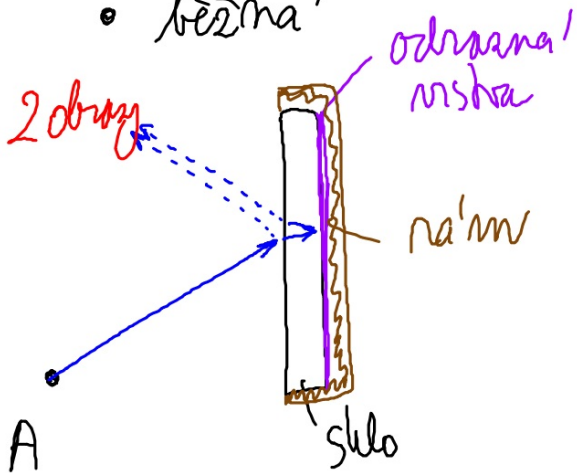 • běžná
odrazná
vrstva
2 obrazy
nátěr
A
sklo